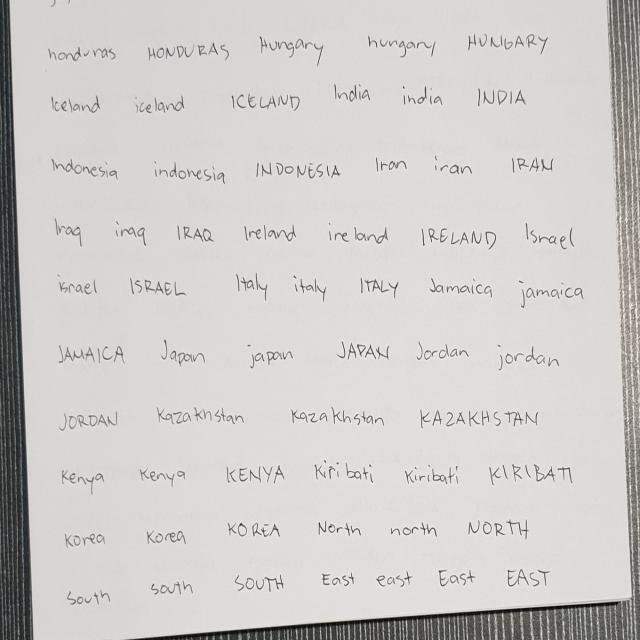 honduras HONDURAS Hungary hungary HUNGARY
Iceland iceland ICELAND India india INDIA
Indonesia indonesia INDONESIA Iran iran IRAN
Iraq iraq IRAQ Ireland ireland IRELAND Israel
israel ISRAEL Italy italy ITALY Jamaica jamaica
JAMAICA Japan japan JAPAN Jordan jordan
JORDAN Kazakhstan kazakhstan KAZAKHSTAN
Kenya kenya KENYA Kiribati kiribati KIRIBATI
Korea korea KOREA North north NORTH
South south SOUTH East east East EAST